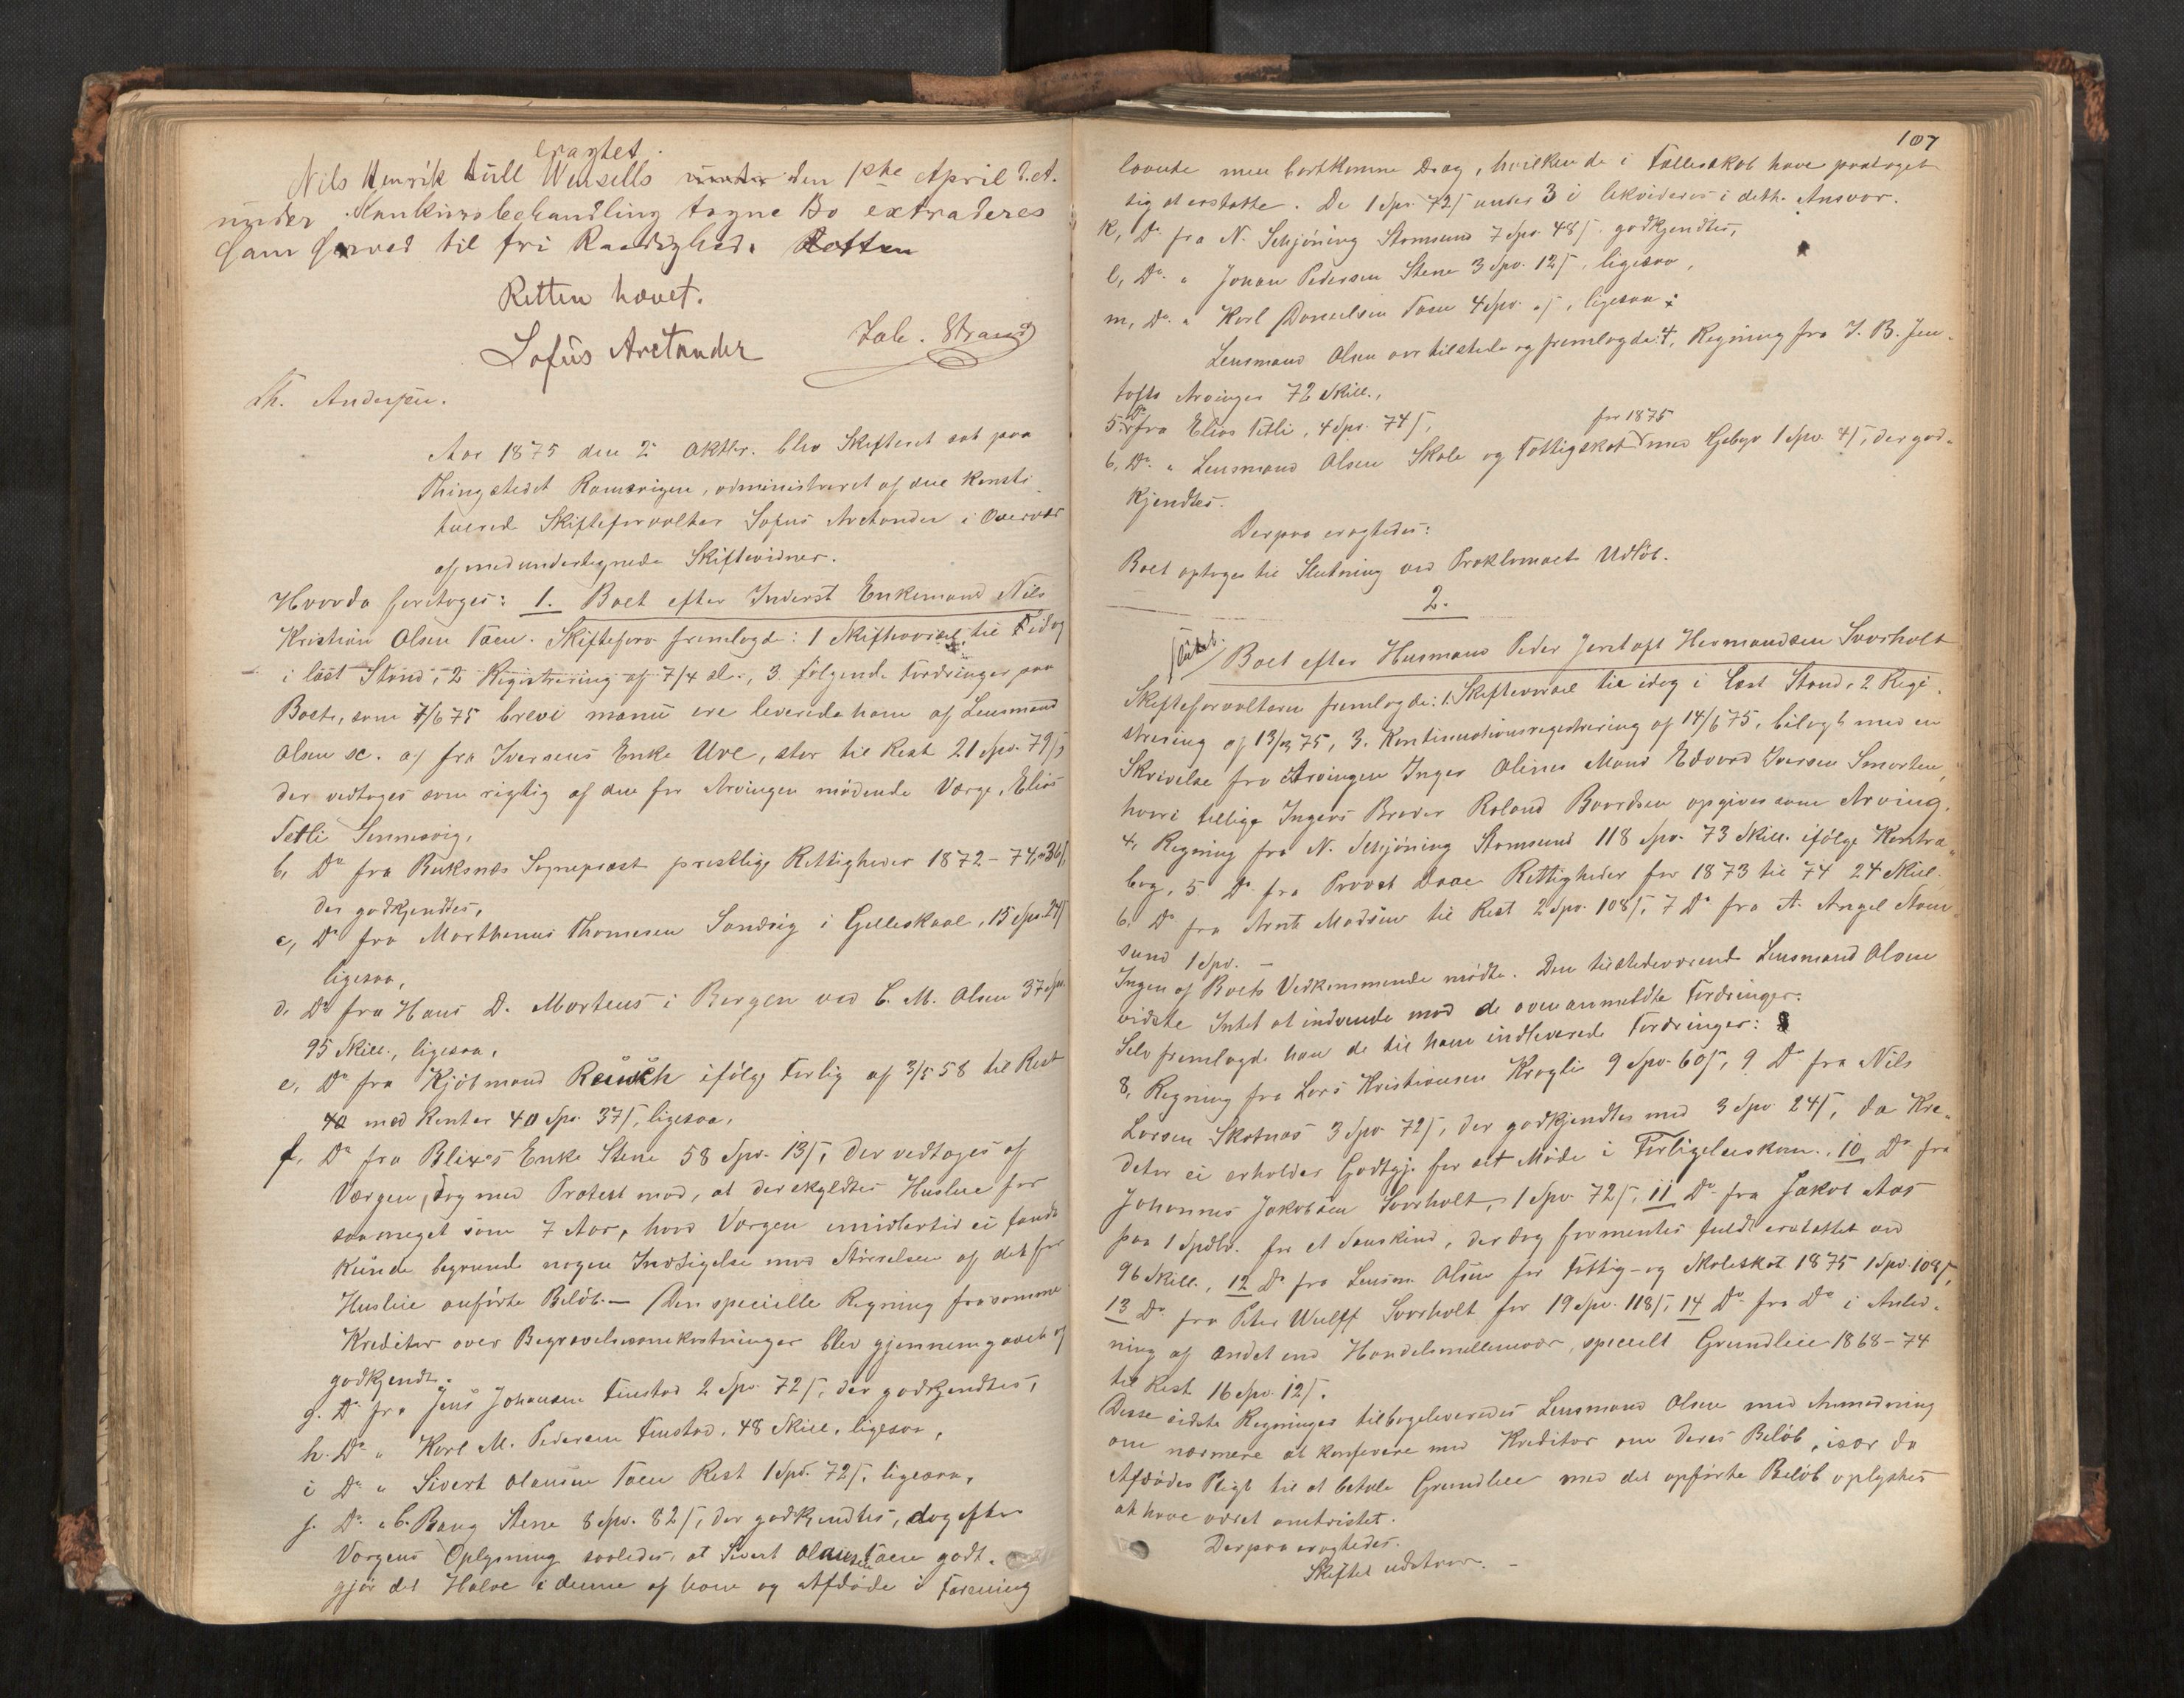 eragtet.
Nils Henrik Lüll Wensells den 1ste April d.A.
under Konkursbehandling tagne Bo extraderes
ham herved til fri Raadighed. Retten
Retten hævet.
Lofús Arctander Jak. Strand
Th. Andersen.
Aar 1875 den 2 Oktbr. blev Skifteret sat paa
Thingstedet Ramsvigen, administreret af den konsti-
tuerede Skifteforvalter Sofus Arctander i Overvær
af medundertegnede Skiftevidner.
Hvorda foretoges: 1. Boet efter Inderst Enkemand Nils
Kristian Olsen Taen. Skifteforv. fremlagde: 1 Skiftevarsel til Idag
i læst Stand, 2 Registrering af 7/4 d.A., 3 følgende Fordringer paa
Boet, som 7/6 75 brevi manu ere leverede ham af Lensmand
Olsen sc. a) fra Iversens Enke Ure, stor til Rest 21 Spd. 79 ß,
der vedtoges som rigtig af den for Arvingen mødende Værge, Elias
Tetli Sennesvig,
b, Do fra Buksnæs Sognepræst prestlige Rettigheder 1872-74, 36 ß,
der godkjendtes,
c, Do fra Morthenus Thomesen Sandvig i Gilleskaal, 15 Spd. 24 ß
ligesaa,
d. Do fra Hans D. Mortens i Bergen ved C. M. Olsen 37 Spd.
95 Skill., ligesaa,
e, Do fra Kjøbmand Reusch ifølge Forlig af 3/5 58 til Rest
40 med Renter 40 Spd. 37 ß, ligesaa,
f, Do fra Blix's Enke Stene 58 Spd. 13 ß, der vedtoges af
Værgen, dog med Protest mod, at der skyldtes Husleie for
saameget som 7 Aar, hvad Værgen imidlertid ei fandt
kunde begrunde nogen Indsigelse mod Størrelsen af det for
Husleie anførte Beløb. — Den specielle Regning fra samme
Kreditor over Begravelsesomkostninger blev gjennemgaaet og
godkjendt.
g. Do fra Jens Johansen Finstad 2 Spd. 72 ß, der godkjendtes,
h. Do " Karl M. Pedersen Finstad, 48 Skill, ligesaa,
i Do " Sivert Olausen Taen Rest 1 Spd. 72 ß, ligesaa,
j. Do " C. Bang Stene 8 Spd. 82 ß, der godkjendtes, dog efter
Værgens Oplysning saaledes, at Sivert Olausen Taen godt-
gjør det Halve i denne af ham og Afdøde i Forening
107
lavede men bortkomne Drag, hvilken de i Fællesskab have paataget
sig at erstatte. De 1 Spd. 72 ß under 3 i likvideres i dette Ansvar.
k, Do fra N. Schjøning Stamsund 7 Spd. 48 ß godkjendtes,
l, Do. " Johan Pedersen Stene 3 Spd. 12 ß, ligesaa,
m, Do. " Karl Danielsen Taen 4 Spd. " ß, ligesaa:
Lensmand Olsen var tilstede og fremlagde: 4, Regning fra J. B. Jen-
tofts Arvinger 72 Skill.,
5. Do fra Elias Tetli, 4 Spd. 74 ß,
for 1875
6, Do. " Lensmand Olsen Skole og Fattigskat med Gebyr 1 Spd. 4 ß, der god-
kjendtes.
Derpaa eragtedes:
Boet optages til Slutning ved Proklamaets Udløb.
2.
sluttet.
Boet efter Husmand Peder Jentoft Hermandsen Svorholt
Skifteforvalteren fremlagde: 1. Skiftevarsel til idag i læst Stand, 2 Regi-
strering af 13/3 75, 3. Kontinuationsregistrering af 14/6 75, bilagt med en
Skrivelse fra Arvingen Inger Olines Mand Edvard Iversen Smorten,
hvori tillige Ingers Broder Roland Baardsen opgives som Arving,
4, Regning fra N. Schjøning Stamsund 118 Spd. 73 Skill. ifølge Kontra-
bog, 5. Do fra Provst Daae Rettigheder for 1873 til 74 24 Skill.
6. Do fra Arnt Madsen til Rest 2 Spd. 108 ß, 7 Do fra A. Angel Stam-
sund 1 Spd. —
Ingen af Boets Vedkommende mødte. Den tilstedeværende Lensmand Olsen
vidste Intet at indvende mod de ovenanmeldte Fordringer.
Selv fremlagde han de til ham indleverede Fordringer:
8, Regning fra Lars Kristiansen Kragli 9 Spd. 60 ß, 9 Do fra Nils
Larsen Skotnæs 3 Spd. 72 ß, der godkjendtes med 3 Spd 24 ß, da Kre-
ditor ei erholder Godtgj. for sit Møde i Forligelseskom., 10 Do fra
Johannes Jakobsen Svorholt, 1 Spd. 72 ß, 11 Do fra Jakob Aas
paa 1 Spdlr. for et Saueskind, der dog formentes fuldt erstattet ved
96 Skill., 12 Do fra Lensm. Olsen for Fattig- og Skoleskat 1875 1 Spd. 108 ß,
13 Do fra Peter Wulff Svorholt for 19 Spd. 118 ß, 14 Do fra Do i Anled-
ning af andet end Handelsmellemvær, specielt Grundleie 1868-74
til Rest 16 Spd. 12 ß.
Disse sidste Regninger tilbageleveredes Lensmand Olsen med Anmodning
om nærmere at konferere med Kreditor om deres Beløb, især da
Afdødes Pligt til at betale Grundleie med det opførte Beløb oplystes
at have været omtvistet.
Derpaa eragtedes.
Skiftet udstaar. —